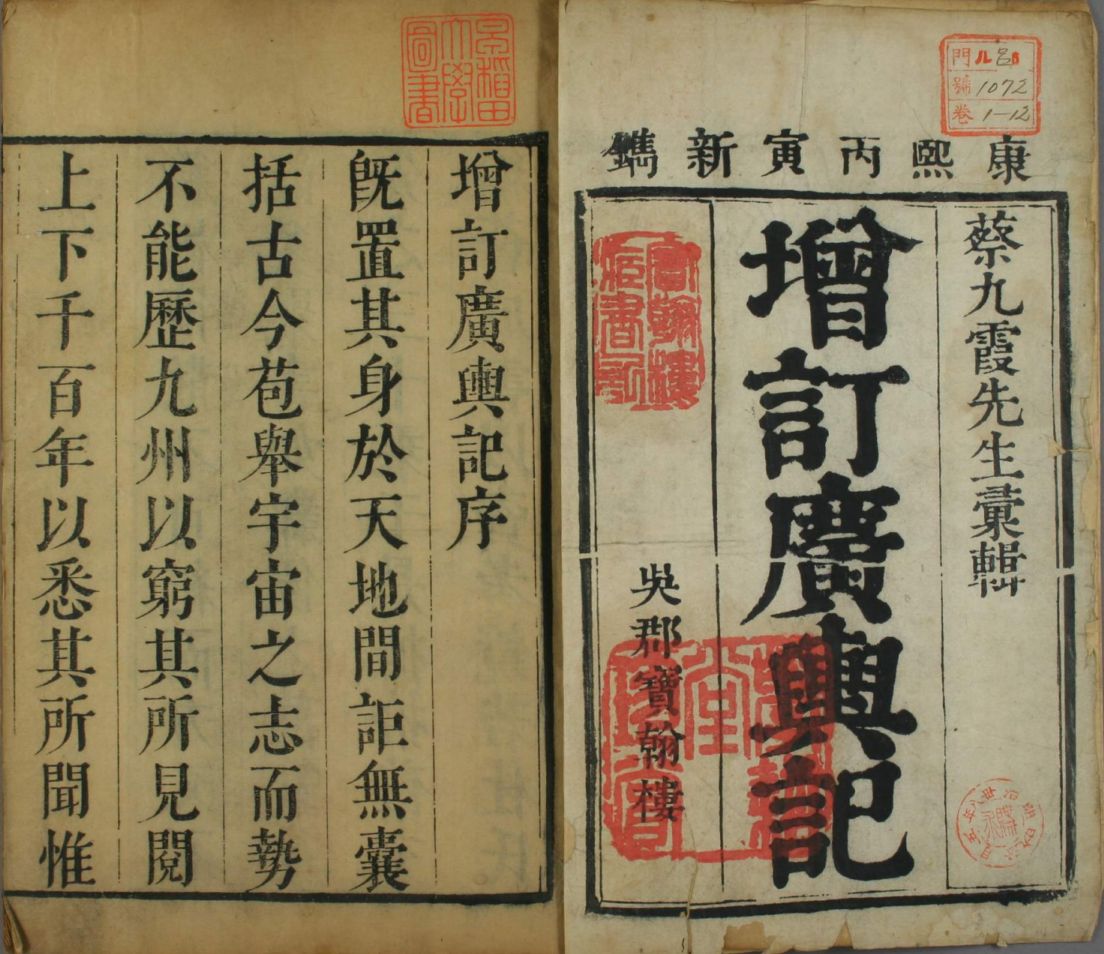 康熙丙寅新鐫
蔡九霞先生彙輯
增訂廣輿記
吳郡寶翰樓
寶翰樓
藏書印
門 ル 8
號 1072
卷 1-12
增訂廣輿記序
既置其身於天地間詎無囊
括古今苞舉宇宙之志而勢
不能歷九州以窮其所見閱
上下千百年以悉其所聞惟
早稻田
大學
圖書